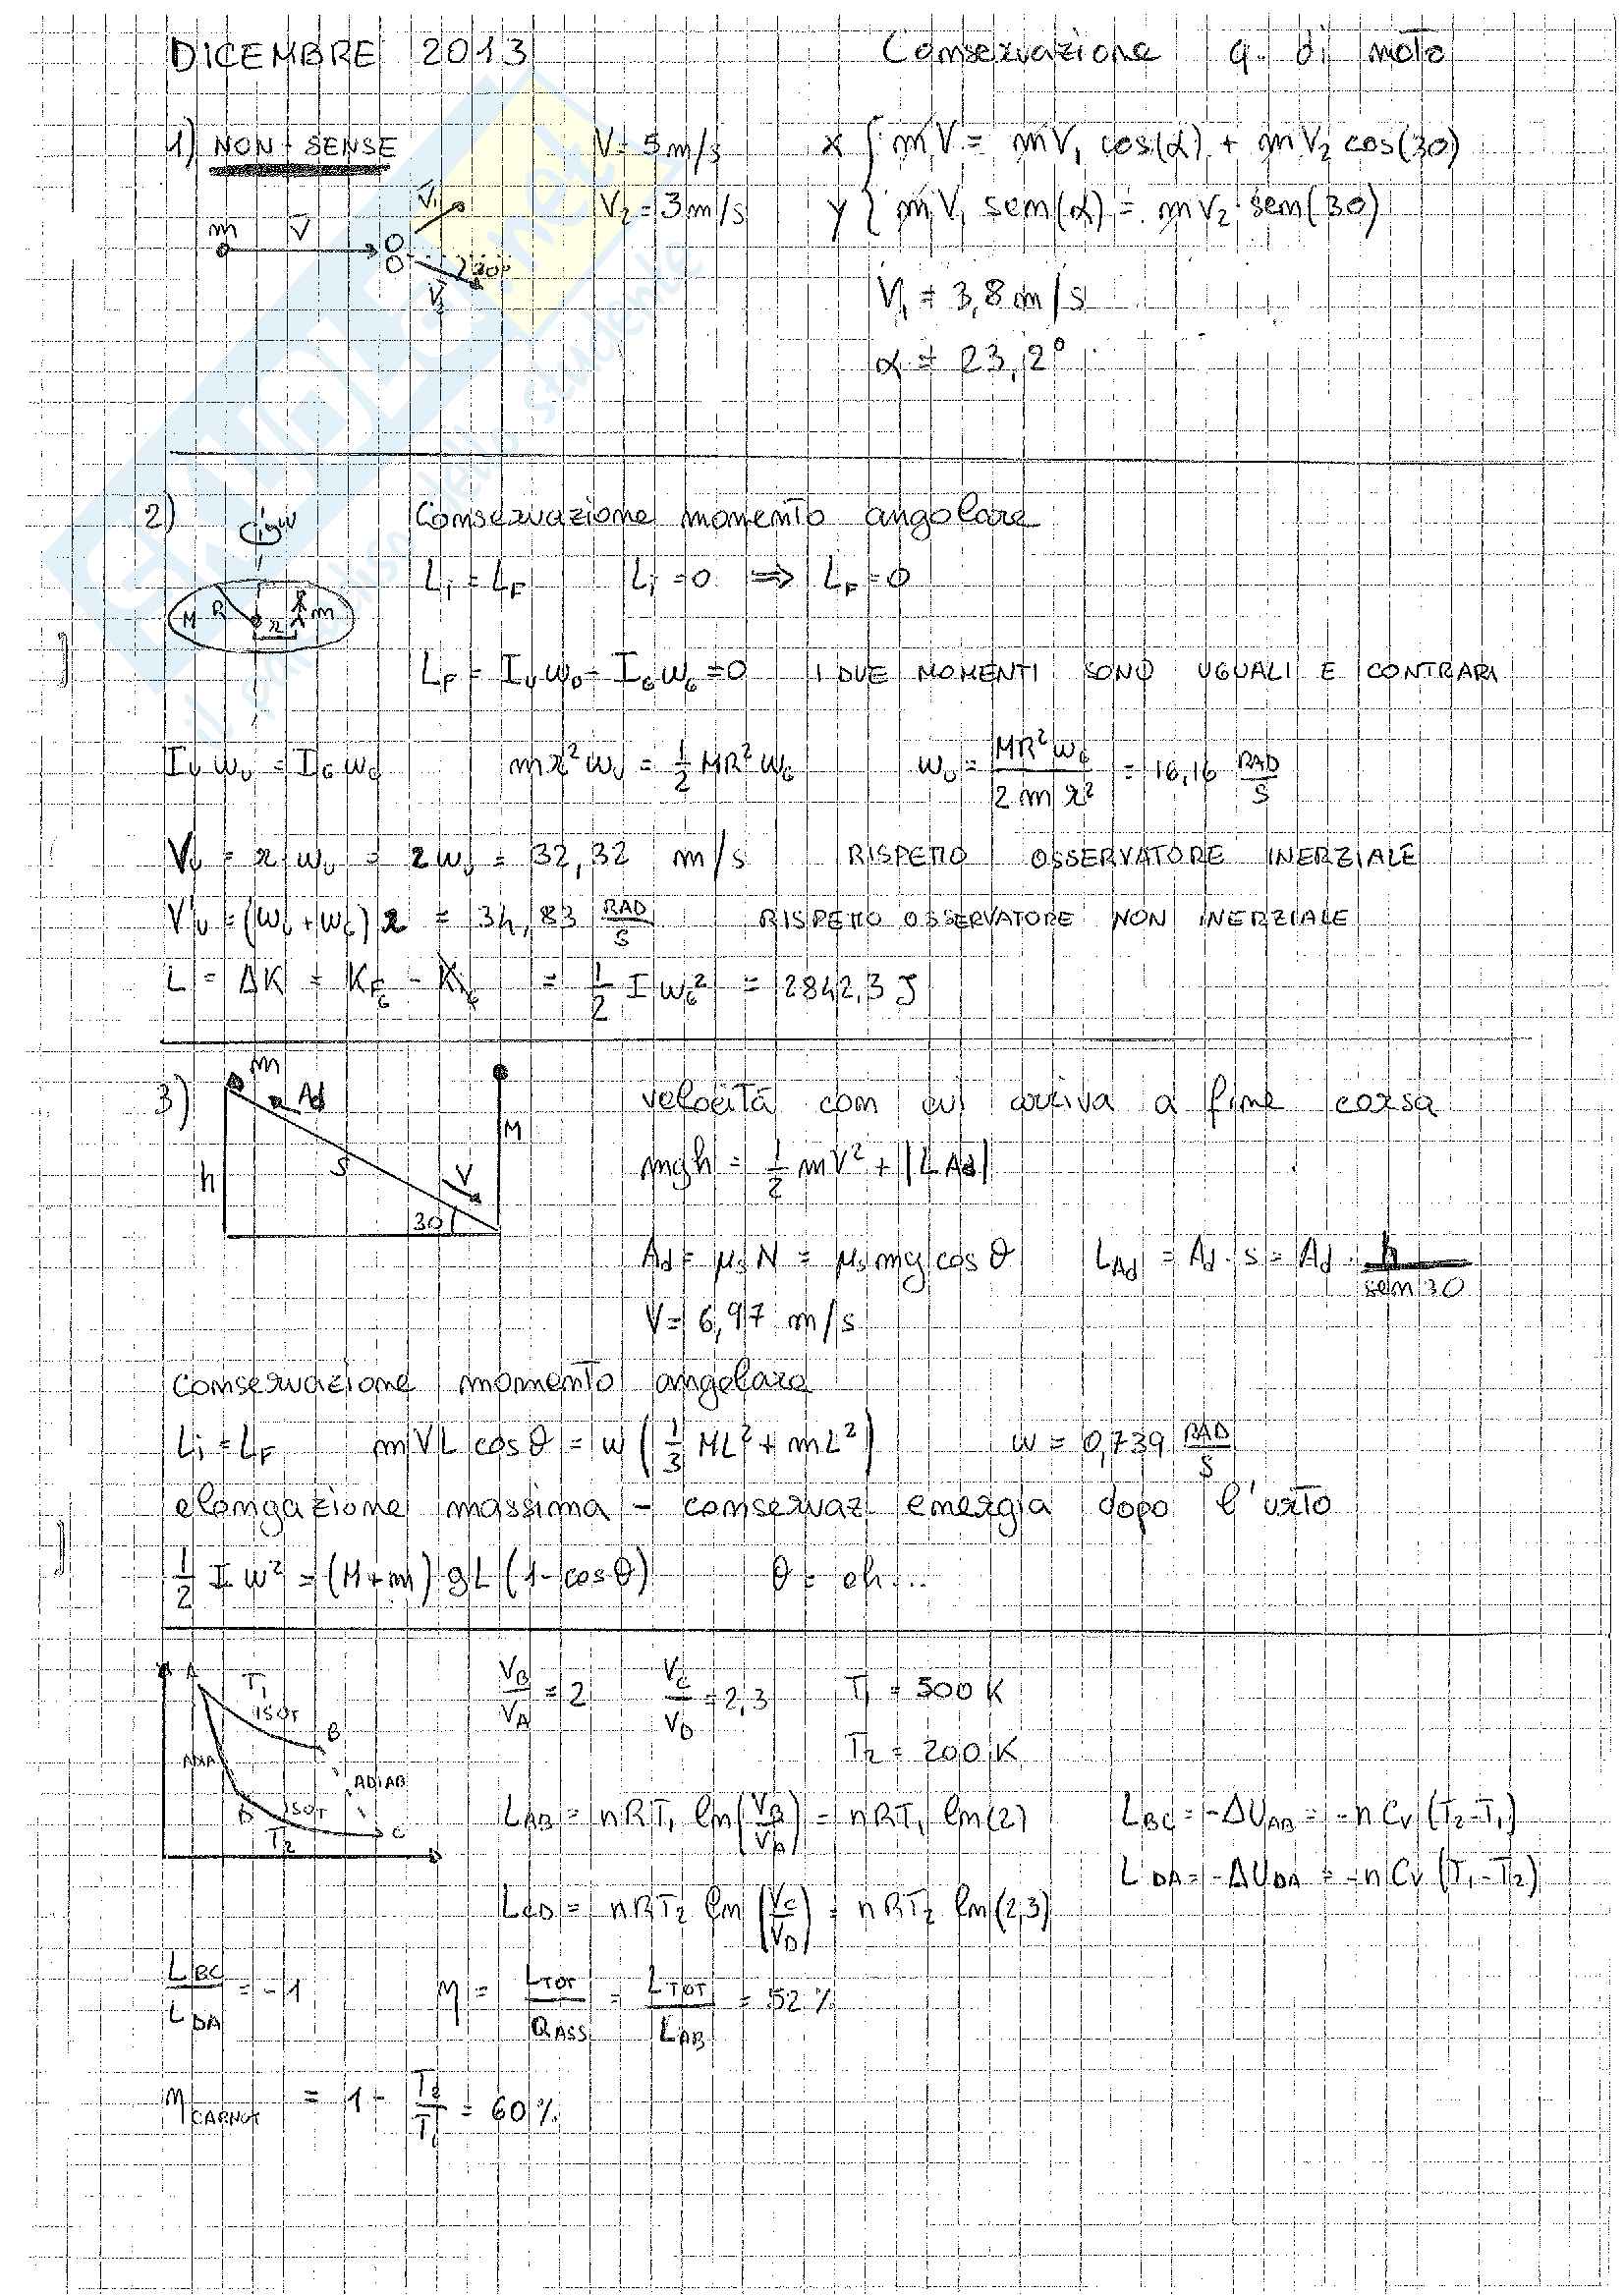 DICEMBRE 2013 Conservazione q. di moto
1) NON-SENSE V = 5 m/s x { mV = mV₁ cos(α) + mV₂ cos(30)
V₂ = 3 m/s y { mV₁ sen(α) = mV₂ sen(30)
m V V₁ 30° V₂
V₁ = 3,8 m/s
α = 23,2°
2) Conservazione momento angolare
Li = LF Li = 0 ⇒ LF = 0
M R r m
LF = Iu ωu - IG ωG = 0 I DUE MOMENTI SONO UGUALI E CONTRARI
Iu ωu = IG ωG mr²ωu = 1/2 MR²ωG ωu = MR²ωG / 2mr² = 16,16 RAD/S
Vu = r ωu = 2ωu = 32,32 m/s RISPETTO OSSERVATORE INERZIALE
V'u = (ωu + ωG) r = 34,83 RAD/S RISPETTO OSSERVATORE NON INERZIALE
L = ΔK = KFG - KiG = 1/2 I ωG² = 2842,3 J
3) m Ad M S h V 30
velocità con cui arriva a fine corsa
mgh = 1/2 mV² + |LAd|
Ad = μd N = μd mg cos θ LAd = Ad · s = Ad · h / sen 30
V = 6,97 m/s
conservazione momento angolare
Li = LF mVL cos θ = ω (1/3 ML² + mL²) ω = 0,739 RAD/S
elongazione massima - conservaz energia dopo l'urto
1/2 I ω² = (M+m) gL (1 - cos θ) θ = eh...
A T₁ ISOT B ADIAB D ISOT T₂ C
VB/VA = 2 VC/VD = 2,3 T₁ = 500 K
T₂ = 200 K
LAB = nRT₁ ln(VB/VA) = nRT₁ ln(2) LBC = -ΔUAB = -nCv (T₂-T₁)
LDA = -ΔUDA = -nCv (T₁-T₂)
LCD = nRT₂ ln(VC/VD) = nRT₂ ln(2,3)
LBC/LDA = -1 η = LTOT/QASS = LTOT/LAB = 52 %
ηCARNOT = 1 - T₂/T₁ = 60 %